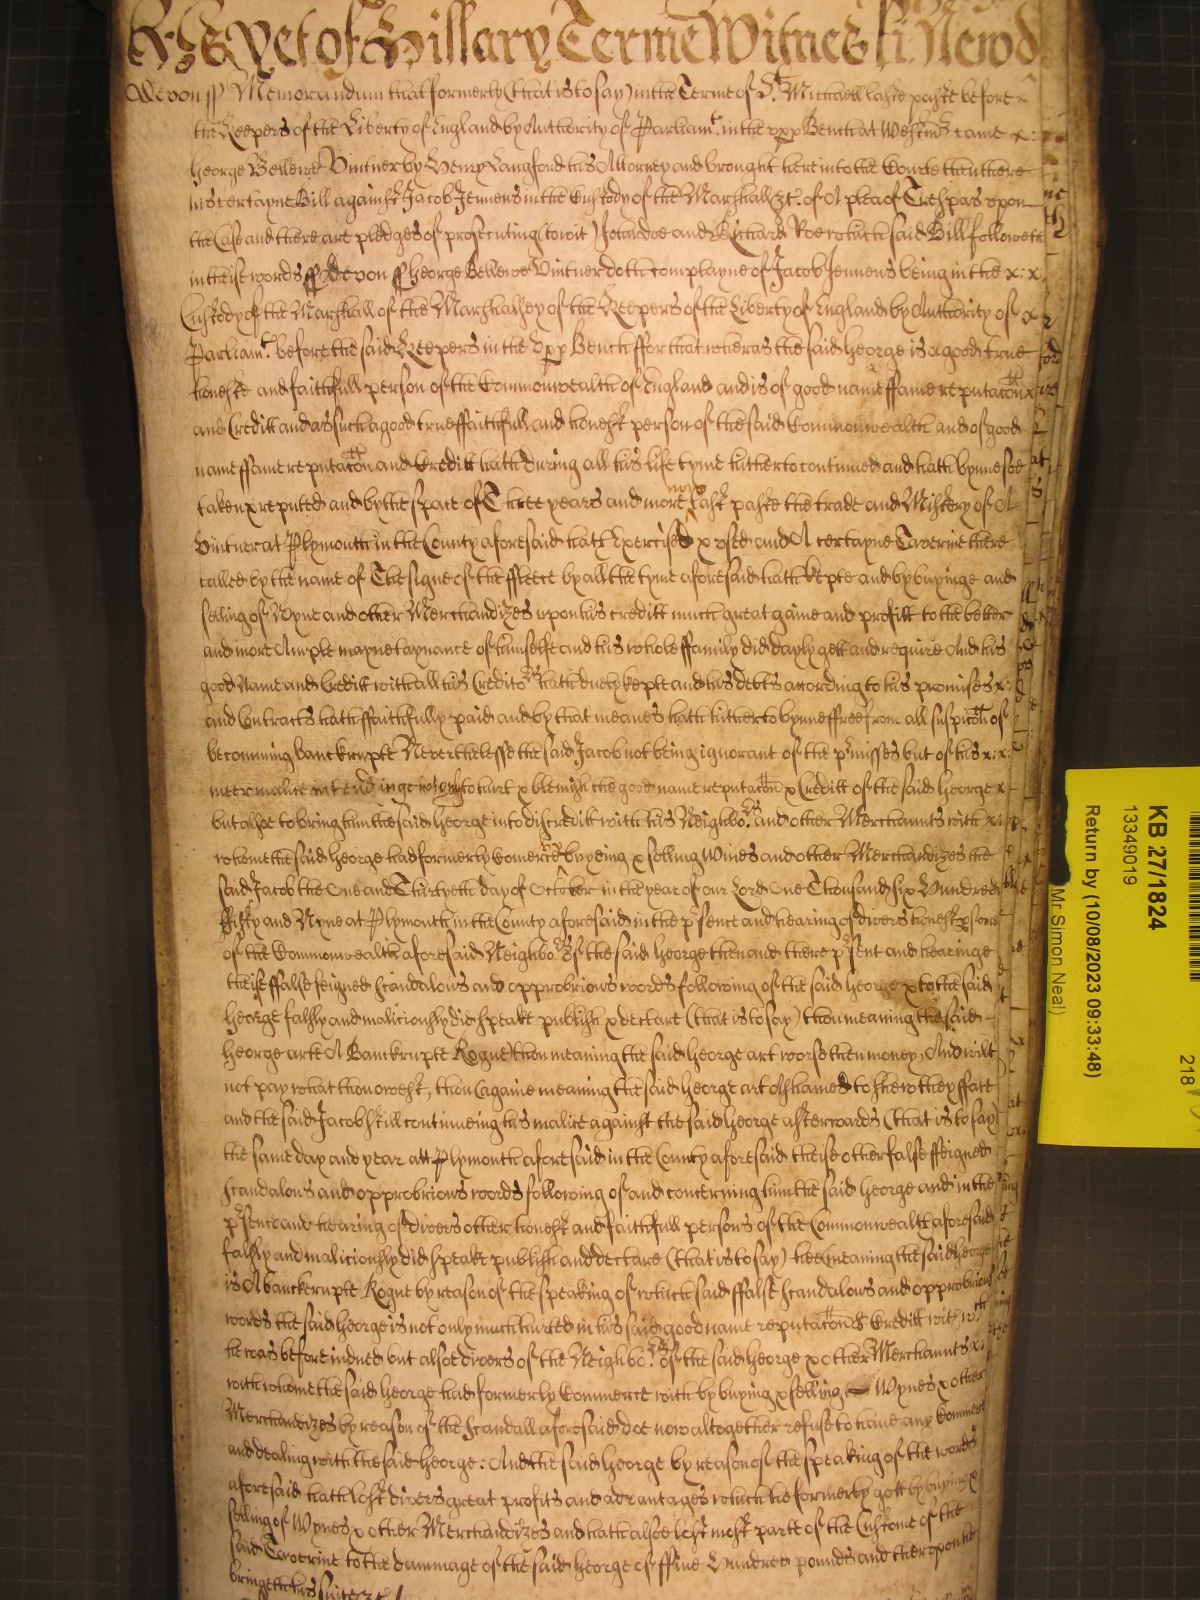 Yet of Hillary Terme Witnes Ri: Newd
Devon ss Memorandum that formerly (that is to say) in the Terme of St. Michaell last paste before x
the Keepers of the Liberty of England by Authority of Parliamt. in the vpp Bench at Westmr came x:
George Bellewe Vintner by Henry Langford his Attorney and brought here into the Courte then there
his certayne Bill against Jacob Jennens in the Custody of the Marshall &c. of A plea of Trespas vpon
the Case and there are pledges of prosecuting (to wit) John doe and Richard Roe which said Bill followeth
in theise words ss Devon ss George Bellewe Vintner doth complayne of Jacob Jennens being in the x: x
Custody of the Marshall of the Marshalsey of the Keepers of the Liberty of England by Authority of x
Parliamt. before the said Keepers in the vpp Bench ffor that wheras the said George is a good true
honest and faithfull person of the Commonwealth of England and is of good name ffame reputacon x
and Creditt and as such a good true ffaithfull and honest person of the said Commonwealth and of good
name ffame reputacon and Creditt hath during all his life tyme hitherto continued and hath bynne soe
taken x reputed and by the space of Three years and more now last paste the trade and Mistery of A
Vintner at Plymouth in the County aforesaid hath Exercised x vsed and A certayne Taverne there
called by the name of The signe of the ffleece by all the tyme aforesaid hath kepte and by buyinge and
selling of Wyne and other Merchandizes vpon his creditt much great gaine and profitt to the better
and more Ample mayntaynance of himselfe and his whole ffamily did dayly gett and require And his
good Name and Creditt with all his Creditors hath duely kepte and his debts according to his promises x:
and Contracts hath ffaithfully paid and by that means hath hitherto bynne ffree from all suspicon of
becomming banckrupte Neverthelesse the said Jacob not being ignorant of the pmisses but of his x: x:
meer malice intendinge not only to hurt x blemish the good name reputacon x Creditt of the said George x
but alsoe to bring him the said George into discreditt with his Neighbors and other Merchannts with x:
whome the said George had formerly Comerce by buying x selling Wines and other Merchandizes the
said Jacob the One and Thirtyeth day of October in the year of our Lord One Thousand Six Hundred
ffifty and Nyne at Plymouth in the County aforesaid in the psence and hearing of divers honest psons
of the Commonwealth aforesaid Neighbors of the said George then and there psent and hearinge
theise ffalse feigned scandalous and opprobrious words following of the said George x to the said
George falsly and maliciously did speake publish x declare (that is to say) thou meaning the said
George arte A Banckrupte Rogue thou meaning the said George art worse then money, And wilt
not pay what thou owest, thou (againe meaning the said George art Ashamed to shew they fface
and the said Jacob still continueing his malice against the said George afterwards (that is to say)
the same day and year att Plymouth aforesaid in the County aforesaid theise other false ffeigned
scandalous and opprobrious words following of and concerning him the said George and in the
psence and hearing of divers other honest and faithfull persons of the Commonwealth aforesaid
falsly and maliciously did speake publish and declare (that is to say) hee (meaning the said George
is A banckrupte Rogue by reason of the speaking of which said ffalse scandalous and opprobrious
words the said George is not only much hurted in his said good name reputacon & Creditt with wch
he was before indued but alsoe divers of the Neighbors of the said George x other Merchannts x:
with whome the said George had formerly Commerce with by buying x selling Wynes x other
Merchandizes by reason of the Scandall aforesaid doe now altogether refuse to have any Commerce
and dealing with the said George: And the said George by reason of the speaking of the words
aforesaid hath lost divers great profitts and advantages which he formerly gott by buying x
selling of Wynes x other Merchandizes and hath alsoe lost most parte of the Custome of the
said Taverne to the dammage of the said George of ffive Hundred pounds and therevpon he
bringeth his suite &c
KB 27/1824
13349019
Return by (10/08/2023 09:33:48)
Mr Simon Neal)
218